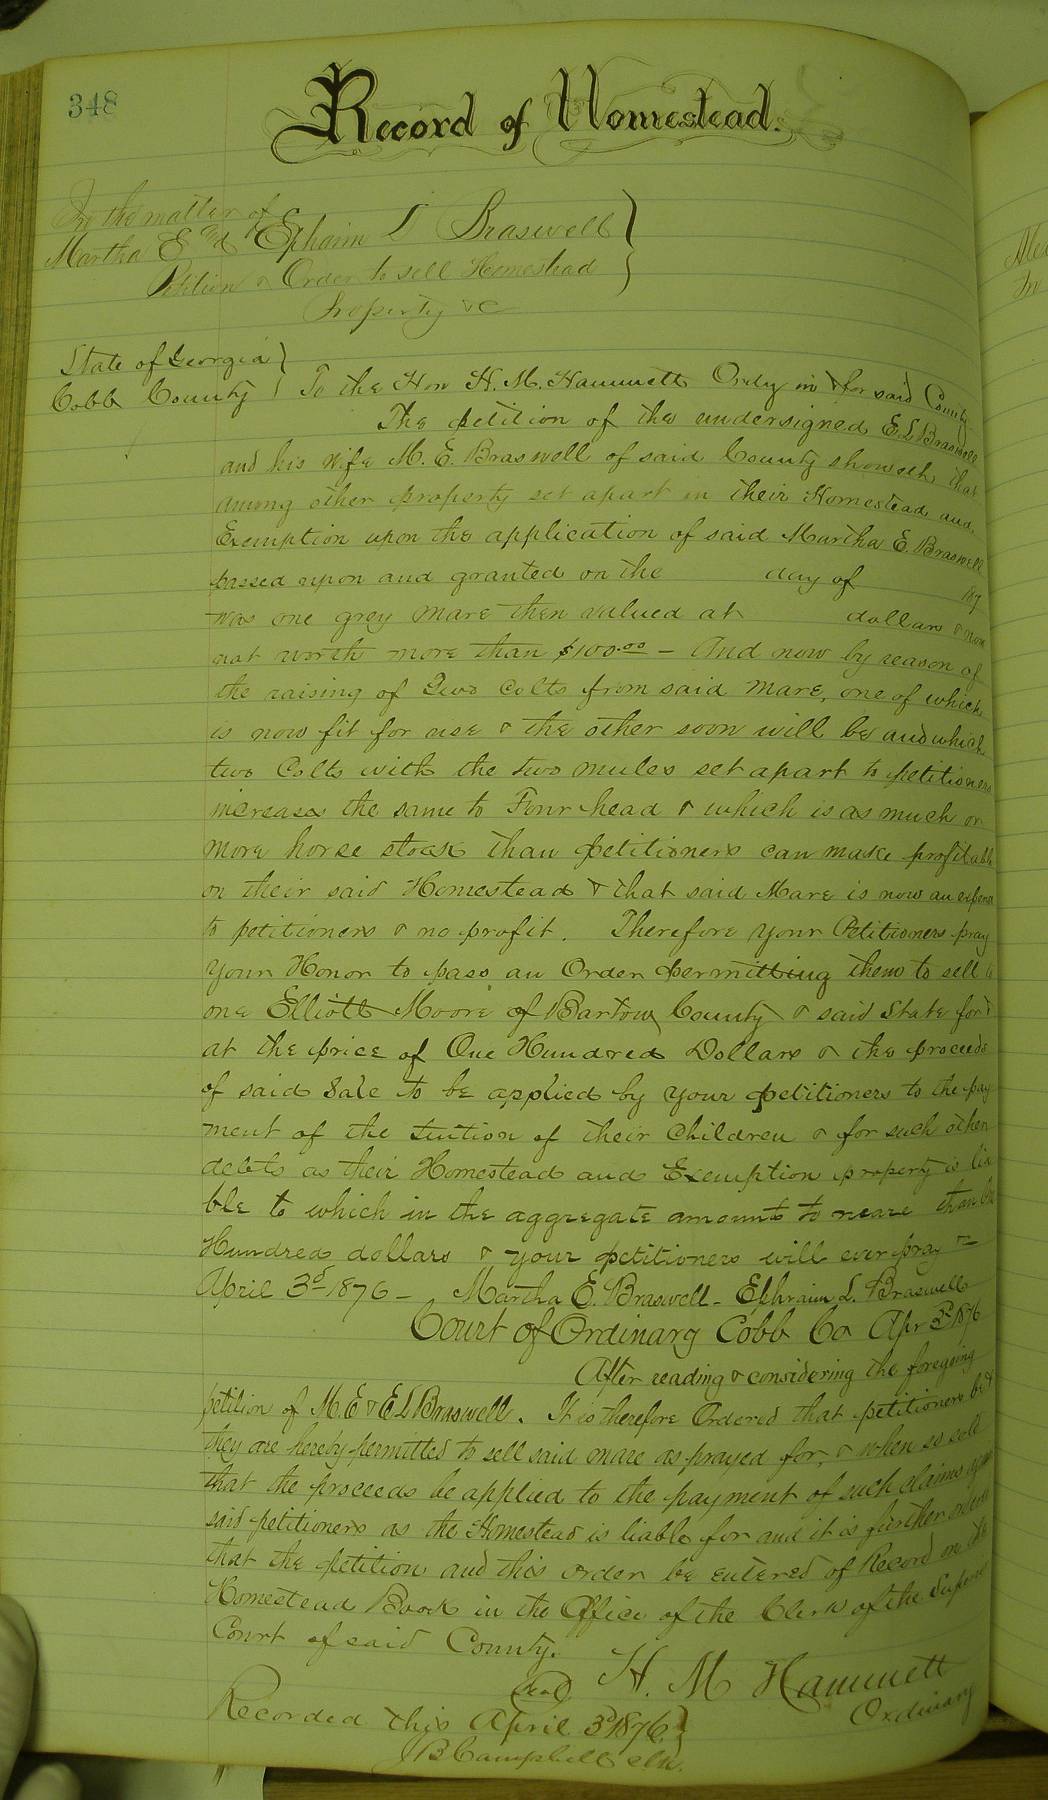 348
Record of Homestead.
In the matter of
Martha E and Ephaim L Braswell
Petition & Order to sell Homestead
Property &c
State of Georgia
Cobb County } To the Hon H. M. Hammett Ordy in & for said County
The petition of the undersigned E L Braswell
and his wife M. E. Braswell of said County showeth that
among other property set apart in their Homestead and
Exemption upon the application of said Martha E. Braswell
passed upon and granted on the day of 187
was one grey mare then valued at dollars & now
not worth more than $100.00 – And now by reason of
the raising of Two Colts from said mare, one of which
is now fit for use & the other soon will be and which
two Colts with the two mules set apart to petitioners
increases the same to Four head & which is as much or
more horse stock than petitioners can make profitable
on their said Homestead & that said Mare is now an expense
to petitioners & no profit. Therefore your Petitioners pray
your Honor to pass an Order permitting them to sell to
one Elliott Moore of Bartow County & said State for &
at the price of One Hundred Dollars & the proceeds
of said Sale to be applied by your petitioners to the pay
ment of the tuition of their children & for such other
debts as their Homestead and Exemption property is lia
ble to which in the aggregate amounts to more than One
Hundred dollars & your petitioners will ever pray &c
April 3d 1876 – Martha E. Braswell – Ephraim L. Braswell
Court of Ordinary Cobb Co Apr 3d 1876
After reading & considering the foregoing
petition of M. E & E L Braswell. It is therefore Ordered that petitioners be &
they are hereby permitted to sell said mare as prayed for, & when so sold
that the proceeds be applied to the payment of such claims against
said petitioners as the Homestead is liable for and it is further ordered
that the petition and this order be entered of Record on the
Homestead Book in the Office of the Clerk of the Superior
Court of said County.
(Seal) H. M Hammett
Ordinary
Recorded this April 3d 1876 }
B Campbell clk.